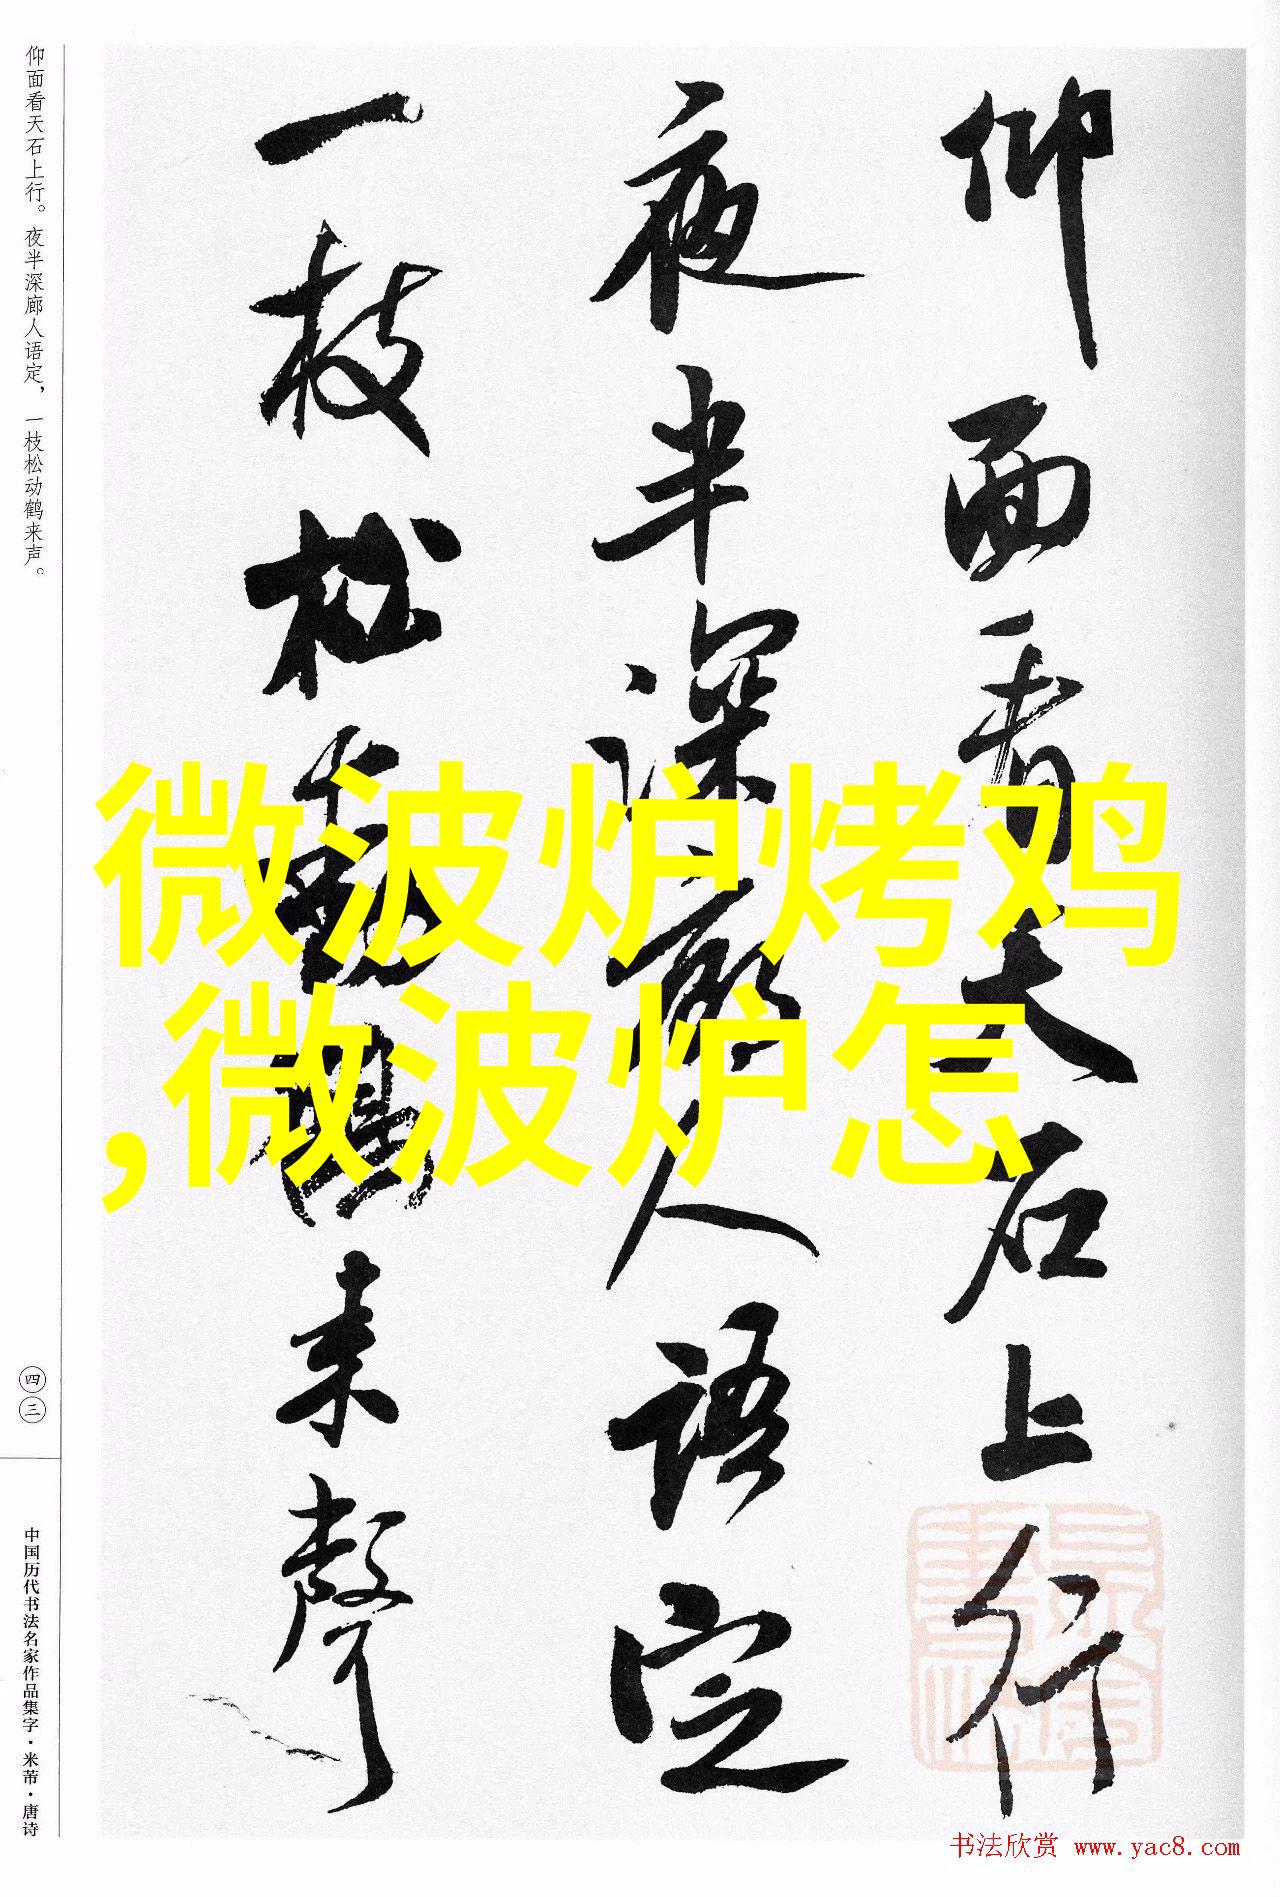 仰面看天石上行
夜半深廊人语定
一枝松動鶴来聲
仰面看天石上行。夜半深廊人语定，一枝松动鹤来声。
四三
中国历代书法名家作品集字·米芾·唐诗
微波炉烤鸡
,微波炉怎
书法欣赏 www.yac8.com